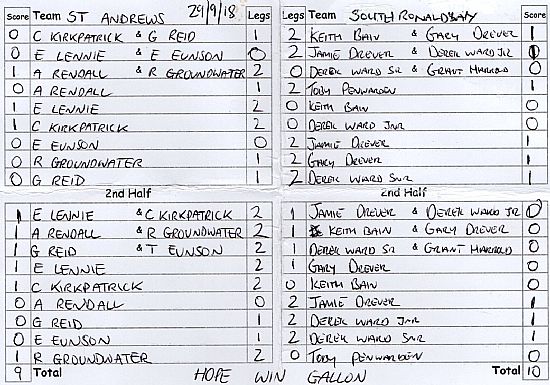 Score Team ST ANDREWS 29/9/18 Legs Legs Team SOUTH RONALDSAY Score
0 C KIRKPATRICK & G REID 1 2 KEITH BAIN & GARY DREVER 1
0 E LENNIE & E EUNSON 0 2 JAMIE DREVER & DEREK WARD JR 1
1 A RENDALL & R GROUNDWATER 2 0 DEREK WARD SR & GRANT HARROLD 0
0 A RENDALL 1 2 TOBY PENWARDEN 1
1 E LENNIE 2 0 KEITH BAIN 0
1 C KIRKPATRICK 2 0 DEREK WARD JNR 0
0 E EUNSON 0 2 JAMIE DREVER 1
0 R GROUNDWATER 1 2 GARY DREVER 1
0 G REID 1 2 DEREK WARD SNR 1
2nd Half 2nd Half
1 E LENNIE & C KIRKPATRICK 2 1 JAMIE DREVER & DEREK WARD JR 0
1 A RENDALL & R GROUNDWATER 2 1 KEITH BAIN & GARY DREVER 0
1 G REID & T EUNSON 2 1 DEREK WARD SR & GRANT HARROLD 0
1 E LENNIE 2 1 GARY DREVER 0
1 C KIRKPATRICK 2 0 KEITH BAIN 0
0 A RENDALL 0 2 JAMIE DREVER 1
0 G REID 1 2 DEREK WARD JNR 1
0 E EUNSON 1 2 DEREK WARD SNR 1
1 R GROUNDWATER 2 0 TOBY PENWARDEN 0
9 Total HOPE WIN GALLON Total 10